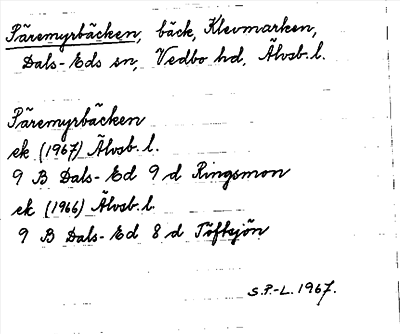 Päremyrbäcken, bäck, Klevmarken,
Dals-Eds sn, Vedbo hd, Älvsb. l.
Päremyrbäcken
ek (1967) Älvsb. l.
9 B Dals-Ed 9 d Ringsmon
ek (1966) Älvsb. l.
9 B Dals-Ed 8 d Töftsjön
S.P.-L. 1967.